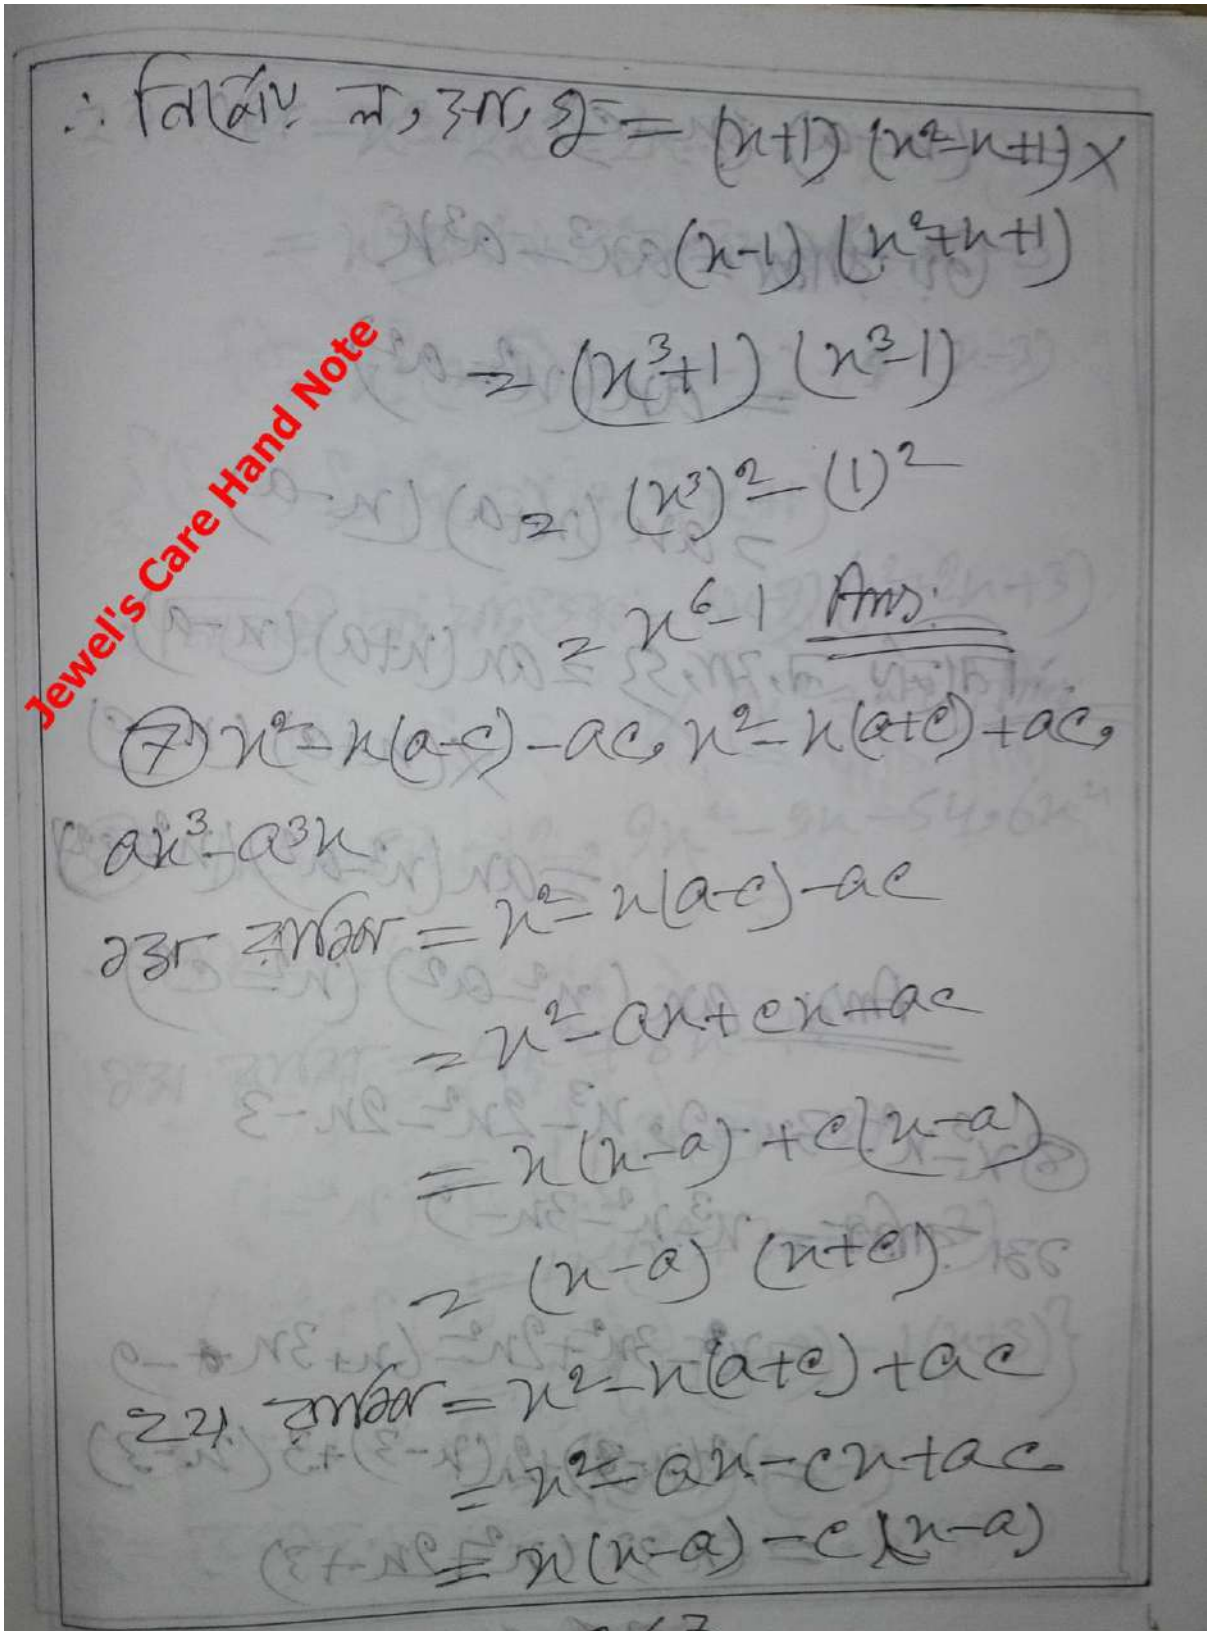 ∴ নির্ণেয় ল, সা, গু = (x+1) (x²-x+1) ×
(x-1) (x²+x+1)
= (x³+1) (x³-1)
= (x³)² - (1)²
= x⁶-1 Ans.
Jewel's Care Hand Note
⑦ x² - x(a-c) - ac, x² - x(a+c) + ac,
ax³ - a³x
১ম রাশি = x² - x(a-c) - ac
= x² - ax + cx - ac
= x(x-a) + c(x-a)
= (x-a) (x+c)
২য় রাশি = x² - x(a+c) + ac
= x² - ax - cx + ac
= x(x-a) - c(x-a)